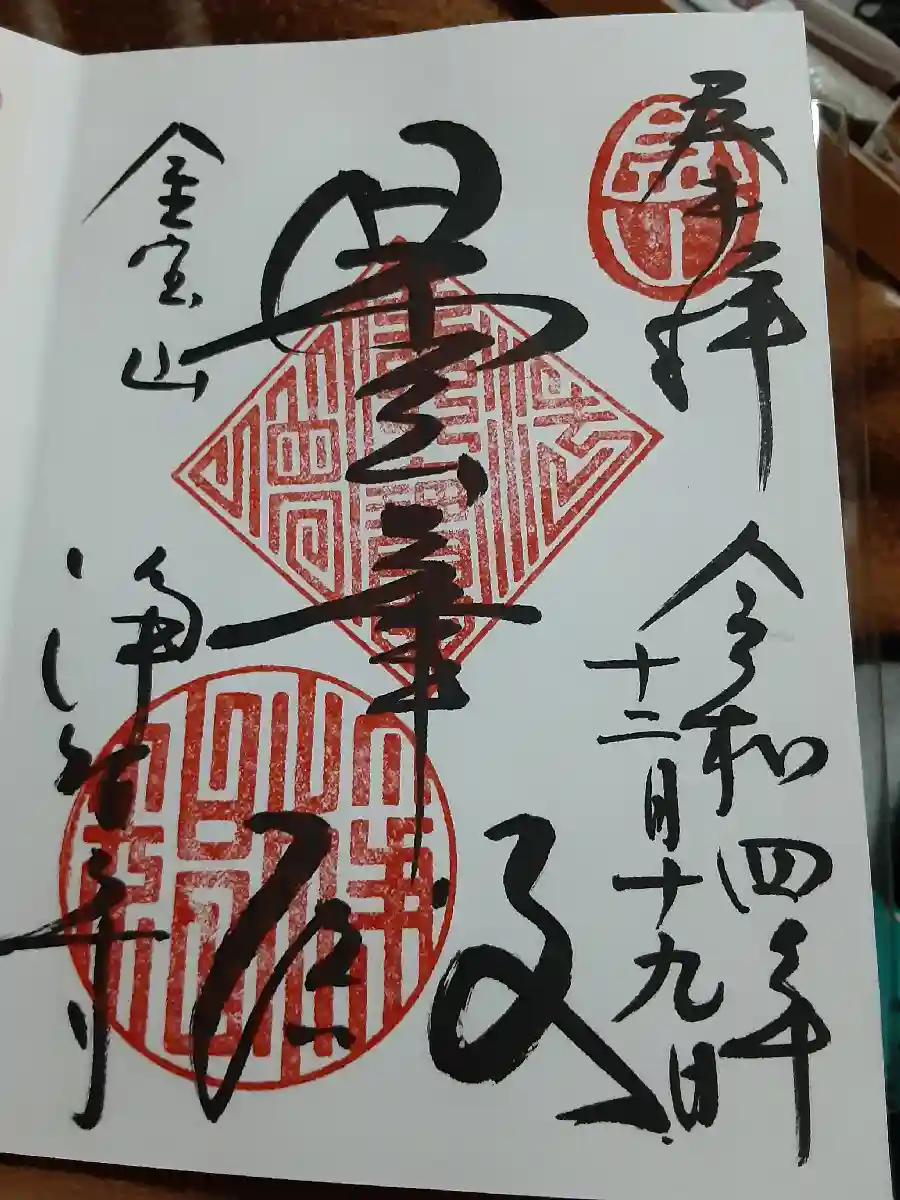 奉拝
令和四年
十二月十九日
曇華殿
金宝山
浄智寺